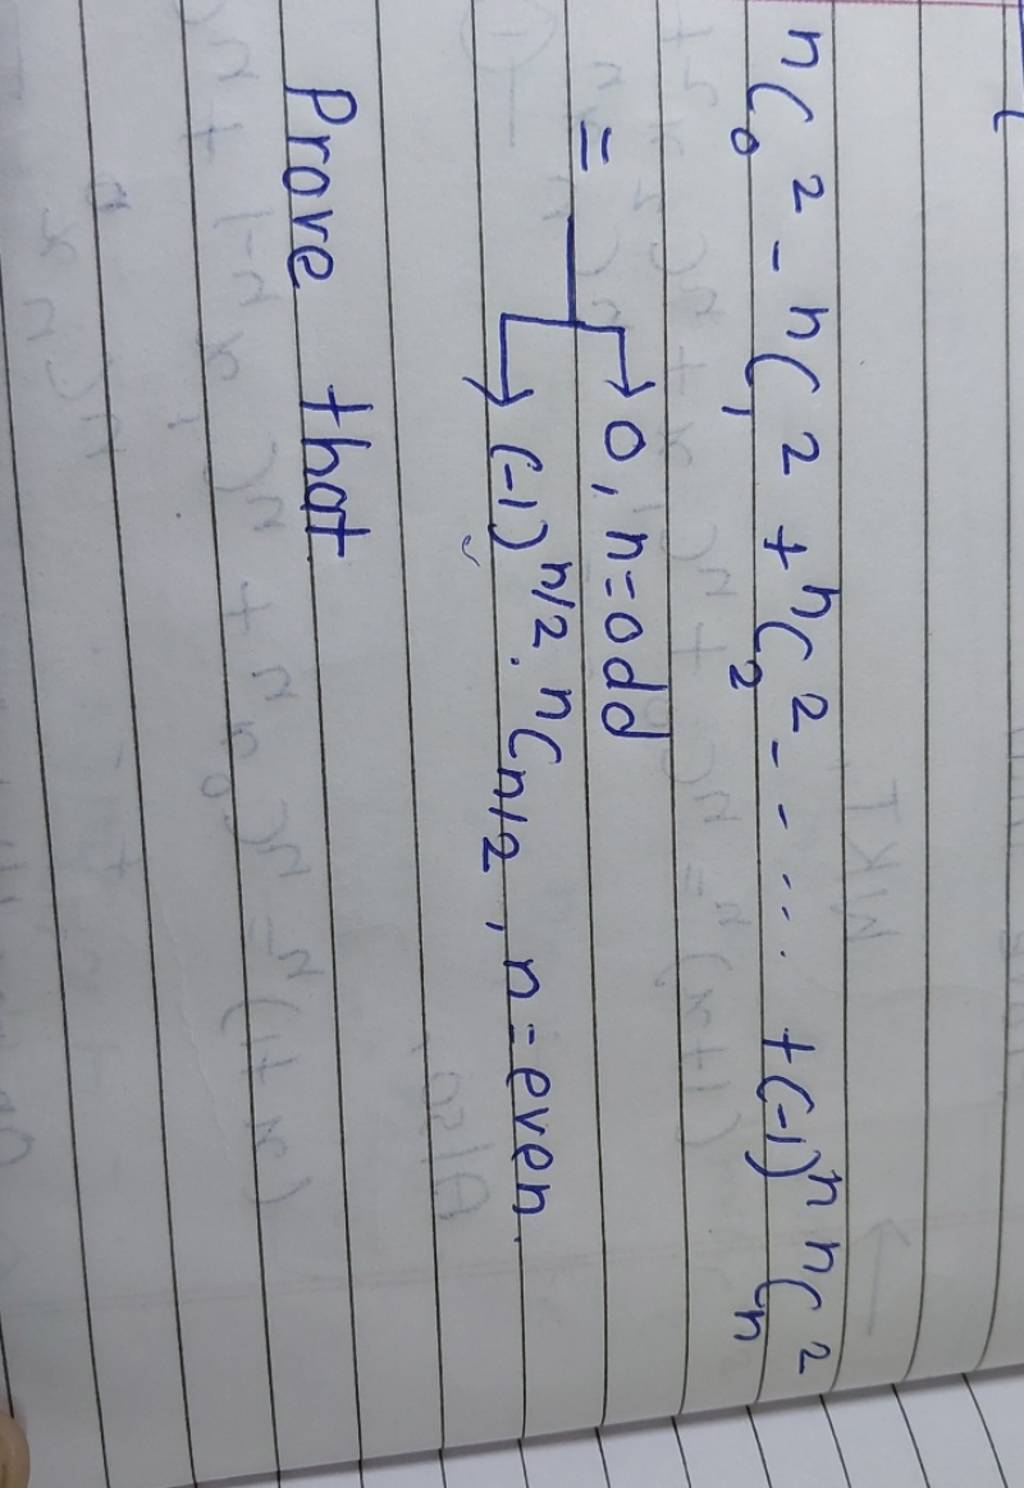 nC₀² - nC₁² + nC₂² - - ... + (-1)ⁿ nCₙ²
= → 0, n = odd
→ (-1)^n/2 . nCn/2, n = even
Prove that